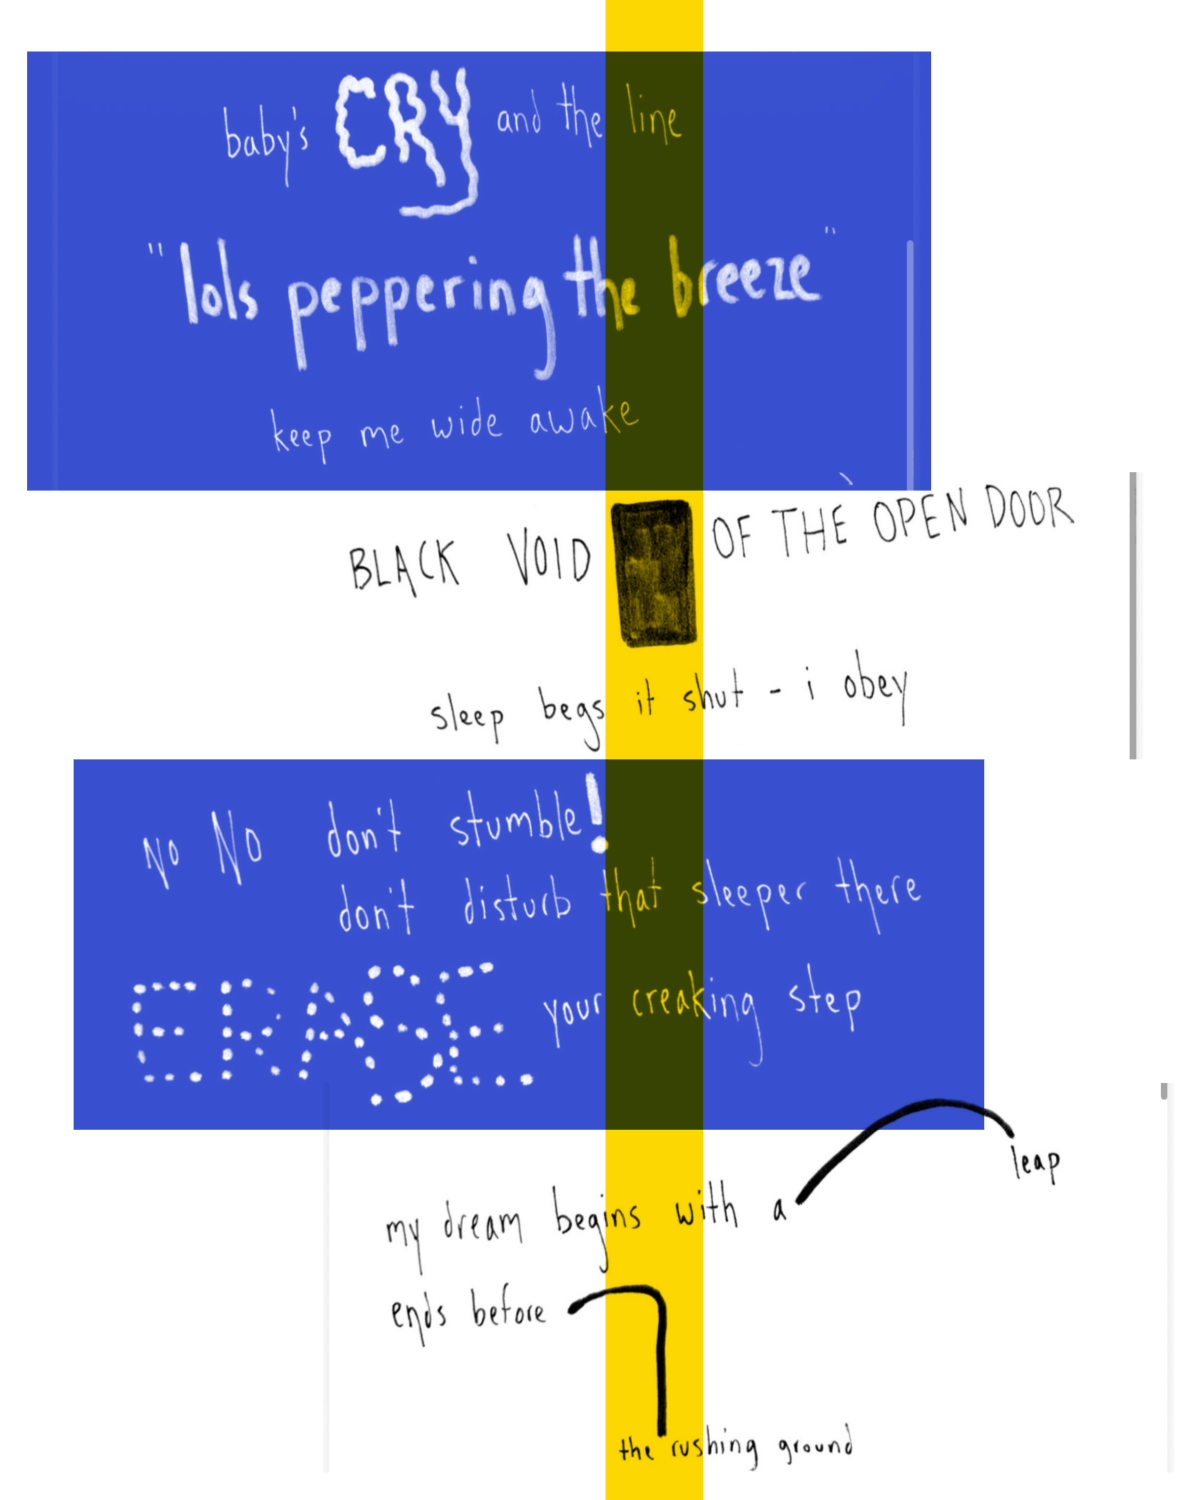 baby's CRY and the line
"lols peppering the breeze"
keep me wide awake
BLACK VOID OF THE OPEN DOOR
sleep begs it shut - i obey
No No don't stumble!
don't disturb that sleeper there
ERASE your creaking step
my dream begins with a leap
ends before
the rushing ground